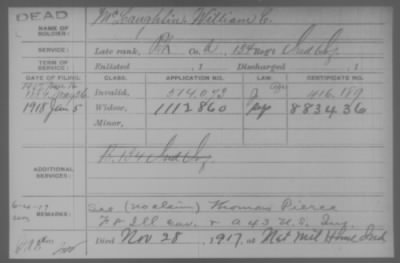 DEAD
NAME OF SOLDIER:
McLaughlin, William C.
SERVICE:
Late rank, Pvt Co. A, 134 Regt Ind Inf
TERM OF SERVICE:
Enlisted , 1 Discharged , 1
DATE OF FILING. CLASS. APPLICATION NO. LAW. CERTIFICATE NO.
Invalid, 514,073 416,189
1918 Jan 5 Widow, 1112860 883436
Minor,
ADDITIONAL SERVICES:
134 Ind Inf
REMARKS:
See (no claim) Thomas Pierce
Ill Cav. + A 43 U.S. Inf.
Died Nov 28, 1917, at Nat Mil Home Ind